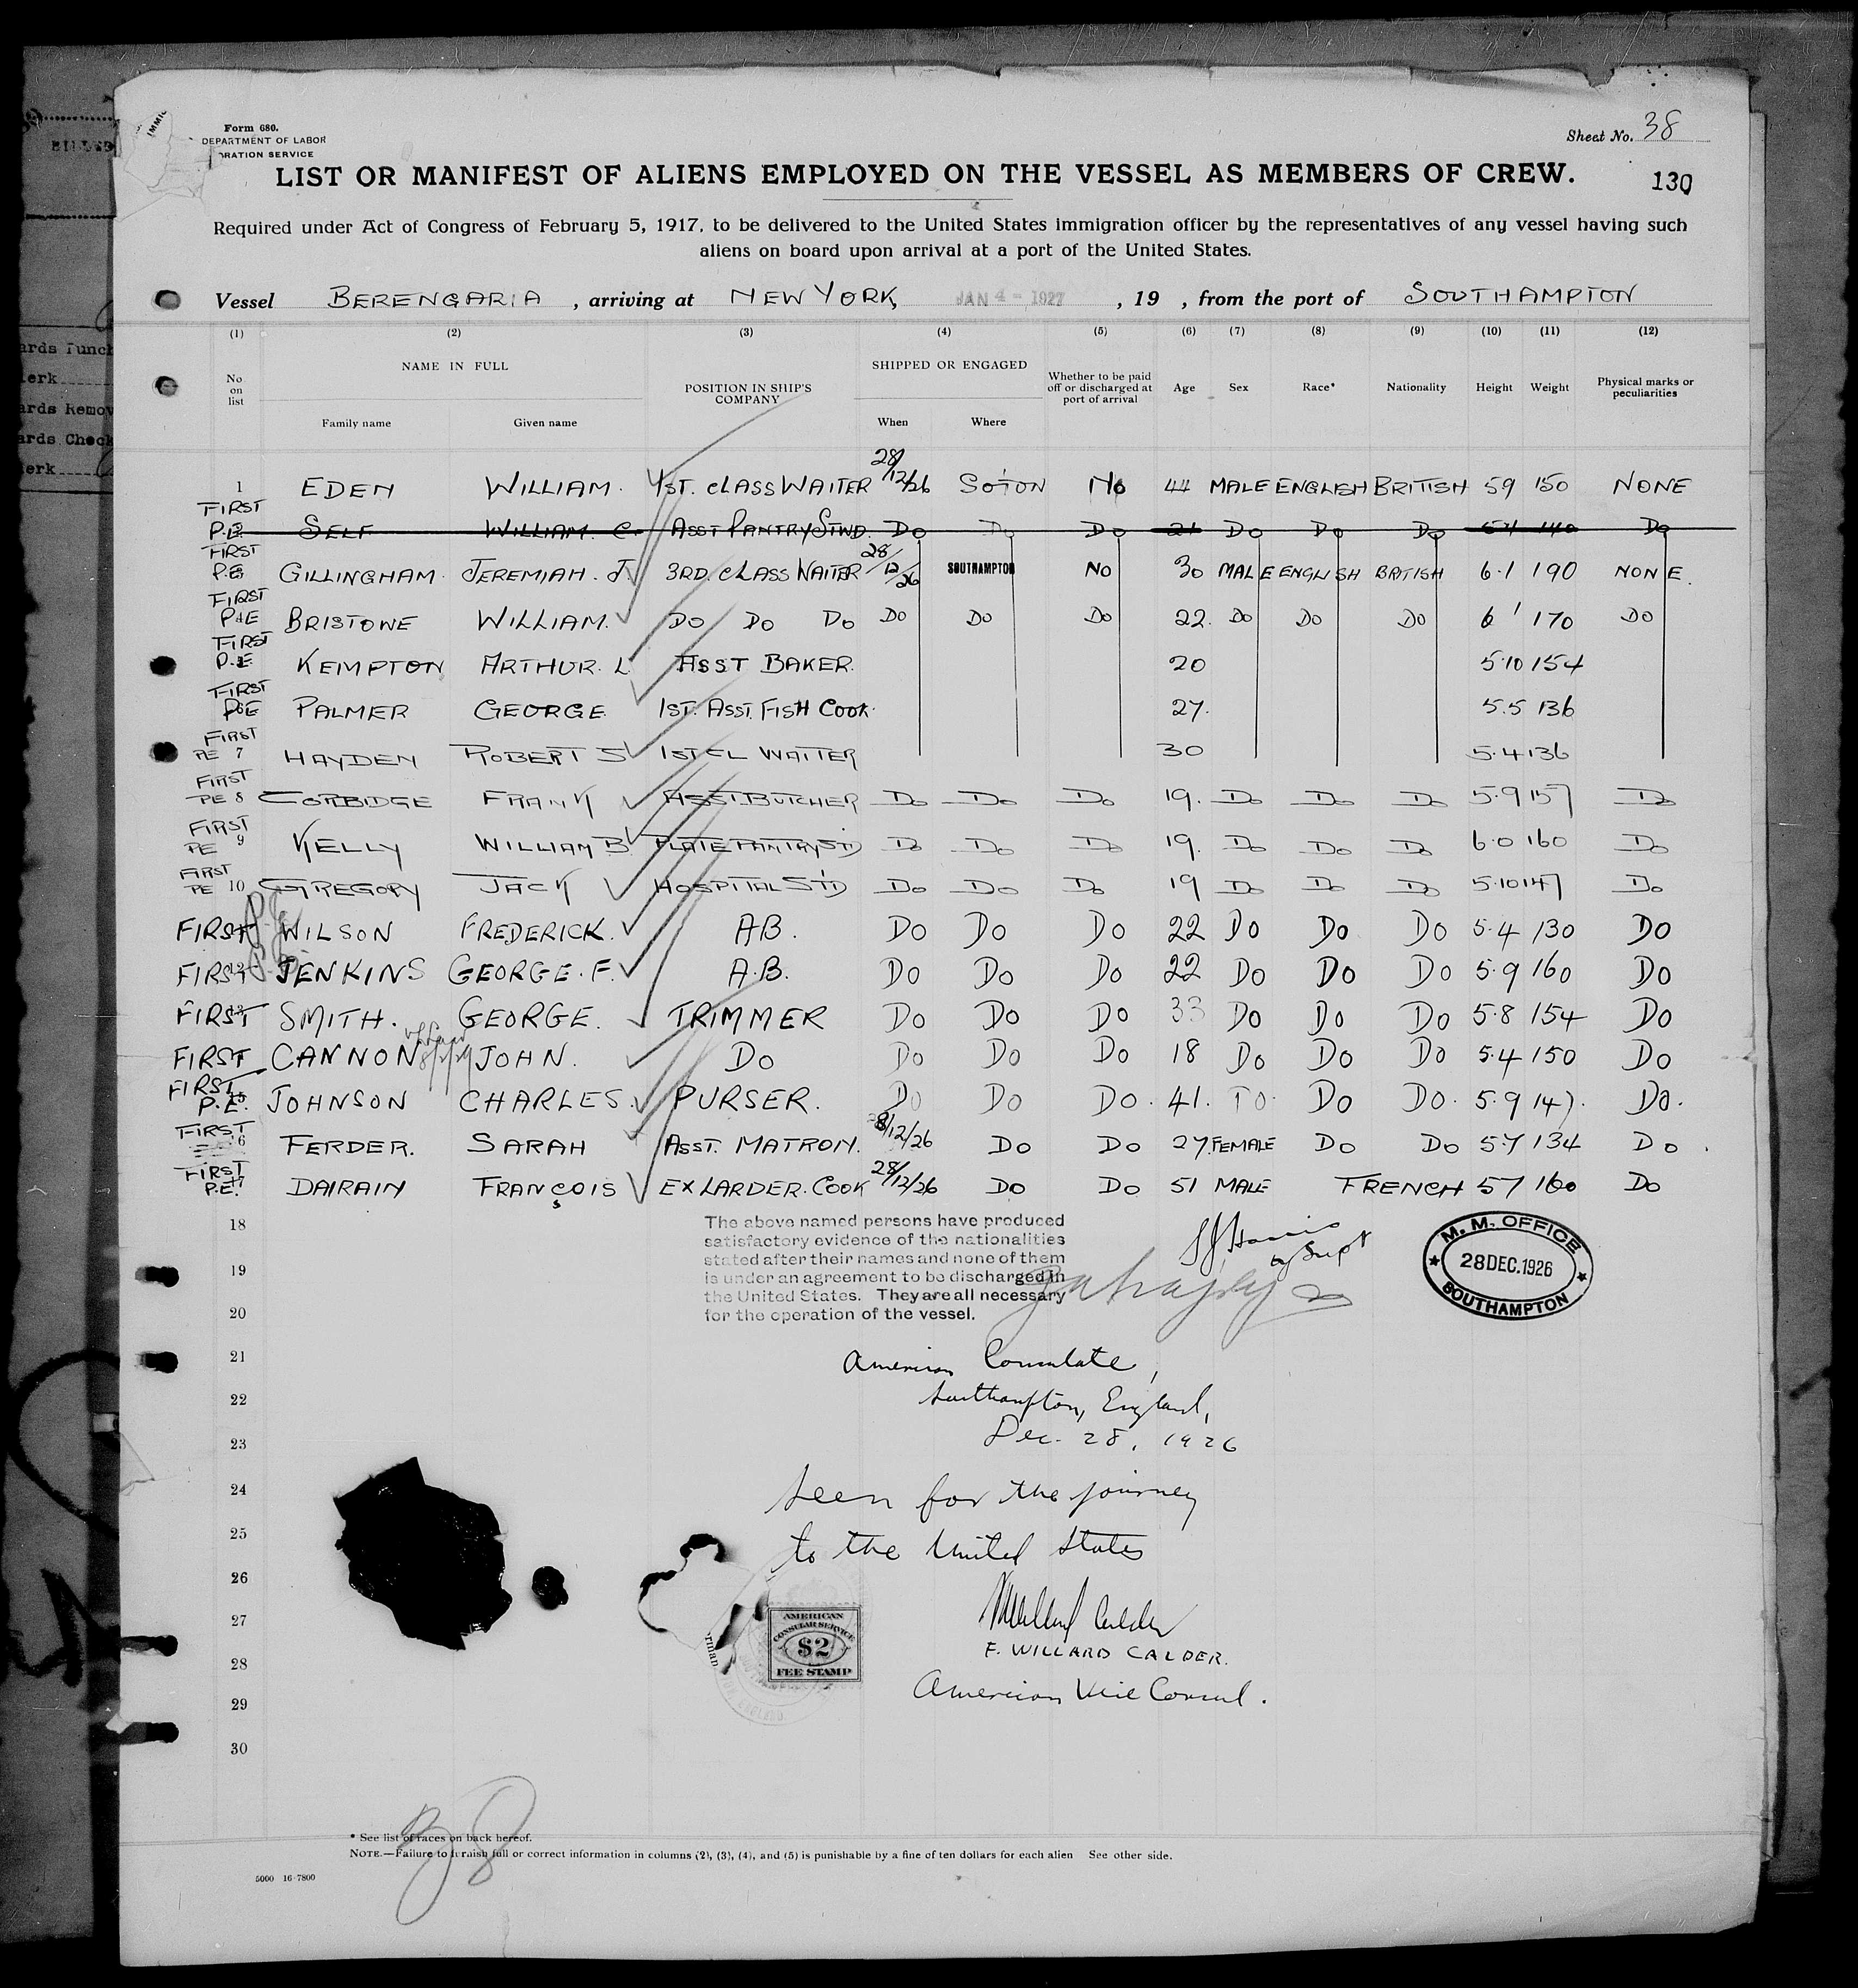 Form 680.
DEPARTMENT OF LABOR
RATION SERVICE
IMMIG
Sheet No. 38
LIST OR MANIFEST OF ALIENS EMPLOYED ON THE VESSEL AS MEMBERS OF CREW.
130
Required under Act of Congress of February 5, 1917, to be delivered to the United States immigration officer by the representatives of any vessel having such
aliens on board upon arrival at a port of the United States.
Vessel BERENGARIA , arriving at NEW YORK, JAN 4 - 1927 , 19 , from the port of SOUTHAMPTON
(1) (2) (3) (4) (5) (6) (7) (8) (9) (10) (11) (12)
No on list
NAME IN FULL
Family name Given name
POSITION IN SHIP'S COMPANY
SHIPPED OR ENGAGED
When Where
Whether to be paid off or discharged at port of arrival
Age Sex Race* Nationality Height Weight
Physical marks or peculiarities
1 EDEN WILLIAM. 1ST. CLASS WAITER 28/12/26 SOTON No 44 MALE ENGLISH BRITISH 59 150 NONE
FIRST P.E. SELF WILLIAM. C. ASST PANTRY STWD. Do Do Do 21 Do Do Do 5.4 140 Do
FIRST P.E GILLINGHAM JEREMIAH. J. 3RD. CLASS WAITER 28/12/26 SOUTHAMPTON NO 30 MALE ENGLISH BRITISH 6.1 190 NONE.
FIRST P.E BRISTOWE WILLIAM. DO DO DO DO DO DO 22. DO DO DO 6' 170 DO
FIRST P.E. KEMPTON ARTHUR. L ASST BAKER. 20 5.10 154
FIRST P.E PALMER GEORGE 1ST. ASST. FISH COOK. 27. 5.5 136
FIRST PE 7 HAYDEN ROBERT S 1ST CL WAITER 30 5.4 136
FIRST PE 8 CORBIDGE FRANK ASST BUTCHER Do Do Do 19. Do Do Do 5.9 157 Do
FIRST PE 9 KELLY WILLIAM B. PLATE PANTRY STD Do Do Do 19. Do Do Do 6.0 160 Do
FIRST PE 10 GREGORY JACK HOSPITAL STD Do Do Do 19 Do Do Do 5.10 147 Do
FIRST WILSON FREDERICK. A.B. DO DO DO 22 DO DO DO 5.4 130 DO
FIRST 12 JENKINS GEORGE. F. A.B. DO DO DO 22 DO DO DO 5.9 160 DO
FIRST 13 SMITH. GEORGE. TRIMMER DO DO DO 33 DO DO DO 5.8 154 DO
FIRST CANNON JOHN. DO DO DO DO 18 DO DO DO 5.4 150 DO
FIRST P.E. JOHNSON CHARLES. PURSER. DO DO DO. 41. DO. DO DO. 5.9 147. DO.
FIRST 16 FERDER. SARAH ASST. MATRON. 28/12/26 DO DO 27. FEMALE DO DO 57 134 DO.
FIRST P.E. DAIRAIN FRANÇOIS EX LARDER. COOK 28/12/26 DO DO 51 MALE FRENCH 57 160 DO
18
19
20
The above named persons have produced
satisfactory evidence of the nationalities
stated after their names and none of them
is under an agreement to be discharged in
the United States. They are all necessary
for the operation of the vessel.
M. M. OFFICE
28 DEC. 1926
SOUTHAMPTON
21
American Consulate,
22
Southampton, England,
23
Dec. 28, 1926
24
Seen for the journey
25
to the United States
26
27
28
29
30
AMERICAN
CONSULAR SERVICE
$2
FEE STAMP
F. WILLARD CALDER.
American Vice Consul.
* See list of races on back hereof.
NOTE.—Failure to furnish full or correct information in columns (2), (3), (4), and (5) is punishable by a fine of ten dollars for each alien See other side.
5000 16-7800